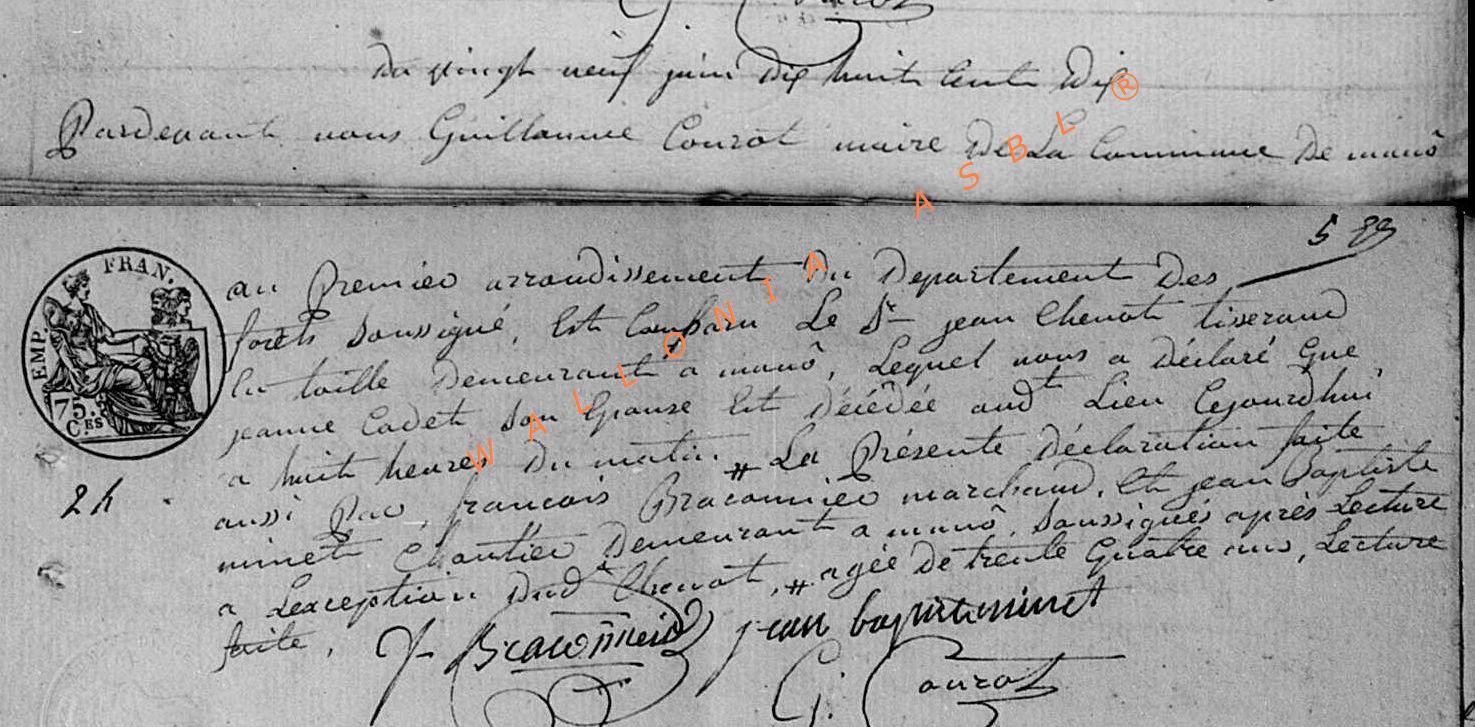 du vingt neuf juin dix huit cent dix
Pardevant nous Guillaume Courot maire de La Commune de manô
5
au Premier arrondissement du Departement Des
forêts soussigné, Est Comparu Le Sr jean Chenot tisserand
En toille demeurant a manô, Lequel nous a déclaré que
jeanne Cadet son Epouse Est décédée audt Lieu Cejourdhui
a huit heures du matin # La Présente déclaration faite
aussi Par francois Braconnier marchand, Et jean Baptiste
minet Chantier Demeurant a manô, soussignés après Lecture
a Lexception dud Chenot, # agée de trente quatre ans, Lecture
faite,
J Braconnier jean baptiste minet
G. Courot
FRAN.
EMP.
75.
C.ES
WALLONIA ASBL®